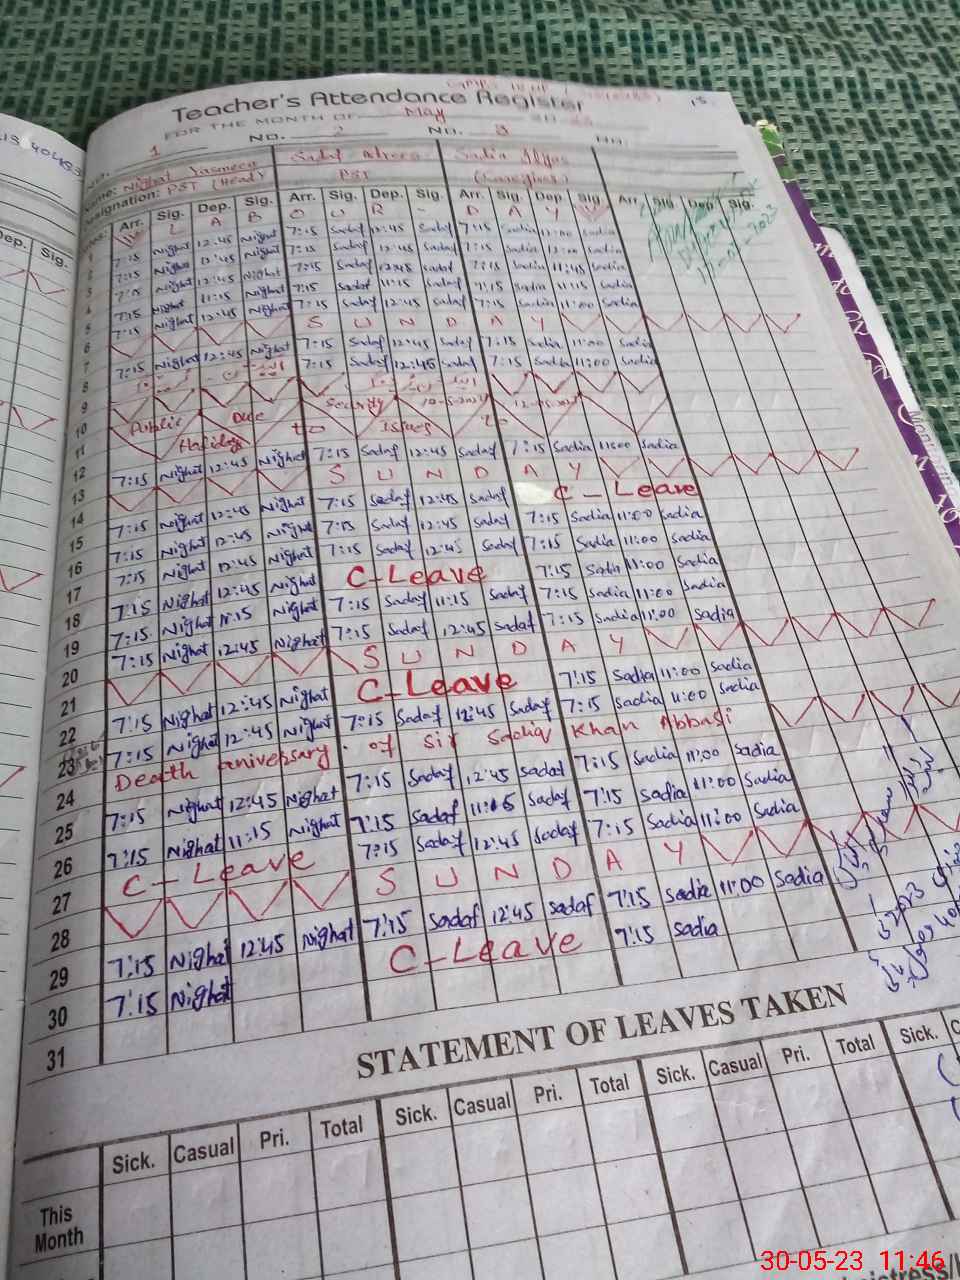 Teacher's Attendance Register
FOR THE MONTH OF May 20 23
No. 1 No. 2 No. 3 No.
Name: Nighat Yasmeen Sadaf Sadia
Designation: PST (Head) PST
Arr. Sig. Dep. Sig. Arr. Sig. Dep. Sig. Arr. Sig. Dep. Sig. Arr. Sig. Dep. Sig.
L A B O U R - D A Y
1
2 7:15 Nighat 12:45 Nighat 7:15 Sadaf 12:45 Sadaf 7:15 Sadia 11:00 Sadia
3 7:15 Nighat 12:45 Nighat 7:15 Sadaf 12:45 Sadaf 7:15 Sadia 12:00 Sadia
4 7:15 Nighat 12:45 Nighat 7:15 Sadaf 12:45 Sadaf 7:15 Sadia 11:45 Sadia
5 7:15 Nighat 11:15 Nighat 7:15 Sadaf 11:15 Sadaf 7:15 Sadia 11:15 Sadia
6 7:15 Nighat 12:45 Nighat 7:15 Sadaf 12:45 Sadaf 7:15 Sadia 11:00 Sadia
7 S U N D A Y
8 7:15 Nighat 12:45 Nighat 7:15 Sadaf 12:45 Sadaf 7:15 Sadia 11:00 Sadia
7:15 Sadaf 12:45 Sadaf 7:15 Sadia 11:00 Sadia
9
10 Public Due Security 10-5-2023 12-05-2023
11 Holiday to Issues to
12
13 7:15 Nighat 12:45 Nighat 7:15 Sadaf 12:45 Sadaf 7:15 Sadia 11:00 Sadia
14 S U N D A Y
15 7:15 Nighat 12:45 Nighat 7:15 Sadaf 12:45 Sadaf C-Leave
16 7:15 Nighat 12:45 Nighat 7:15 Sadaf 12:45 Sadaf 7:15 Sadia 11:00 Sadia
17 7:15 Nighat 12:45 Nighat 7:15 Sadaf 12:45 Sadaf 7:15 Sadia 11:00 Sadia
18 7:15 Nighat 12:45 Nighat C-Leave 7:15 Sadia 11:00 Sadia
19 7:15 Nighat 11:15 Nighat 7:15 Sadaf 11:15 Sadaf 7:15 Sadia 11:00 Sadia
20 7:15 Nighat 12:45 Nighat 7:15 Sadaf 12:45 Sadaf 7:15 Sadia 11:00 Sadia
21 S U N D A Y
22 7:15 Nighat 12:45 Nighat C-Leave 7:15 Sadia 11:00 Sadia
23 7:15 Nighat 12:45 Nighat 7:15 Sadaf 12:45 Sadaf 7:15 Sadia 11:00 Sadia
24 Death aniversary of Sir Sadiq Khan Abbasi
25 7:15 Nighat 12:45 Nighat 7:15 Sadaf 12:45 Sadaf 7:15 Sadia 11:00 Sadia
26 7:15 Nighat 11:15 Nighat 7:15 Sadaf 11:15 Sadaf 7:15 Sadia 11:00 Sadia
27 C-Leave 7:15 Sadaf 12:45 Sadaf 7:15 Sadia 11:00 Sadia
28 S U N D A Y
29 7:15 Nighat 12:45 Nighat 7:15 Sadaf 12:45 Sadaf 7:15 Sadia 11:00 Sadia
30 7:15 Nighat C-Leave 7:15 Sadia
31
STATEMENT OF LEAVES TAKEN
Sick. Casual Pri. Total Sick. Casual Pri. Total Sick. Casual Pri. Total Sick.
This Month
30-05-23 11:46